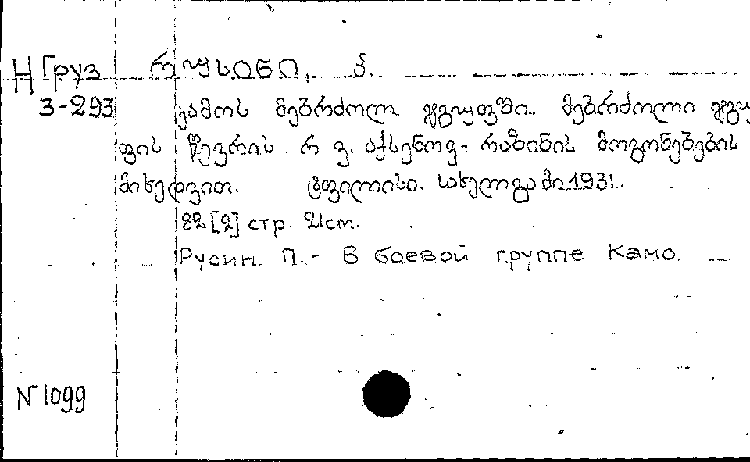 Н Груз რუსინი, პ.
3-293 კამოს მებრძოლ ჯგუფში. მებრძოლი ჯგუ
ფის წევრის რ. ვ. აქსენოვ-რაზინის მოგონებების
მიხედვით. ტფილისი. სახელგამი. 1931.
22 [2] стр. 21cm.
Русин. П. - В боевой группе Камо.
N 1099